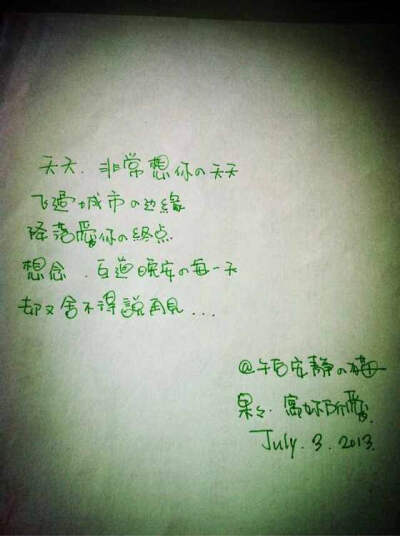 天天.非常想你の天天
飞過城市の边緣
降落愛你の终点
想念.互道晚安の每一天
却又舍不得説再見...
@午后安静の
果々.寫好所愛.
July.3.2013.